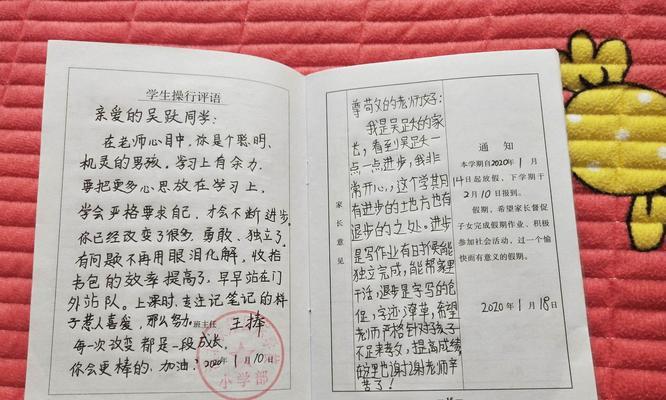 学生操行评语
亲爱的吴跃同学:
在老师心目中,你是个聪明、
机灵的男孩。学习上有余力,
要把更多心思放在学习上,
学会严格要求自己,才会不断进步。
你已经改变了很多,勇敢、独立了,
有问题不再用眼泪化解,收拾
书包的效率提高了,早早站在门
外站队。上课时,专注记笔记的样
子惹人喜爱,那么努力。
班主任 王捧
每一次改变都是一段成长,
你会更棒的,加油!
2020年1月10日
小学部
家长意见
尊敬的老师好:
我是吴跃的家
长,看到吴跃一
点一点进步,我非
常开心,这个学期有
有进步的地方也有
退步的之处。进步
是写作业有时候能
独立完成,能帮家里
干活,退步是字写的仓
促,字迹潦草,希望
老师严格针对孩子
不足来考,提高成绩
在这里也谢谢老师辛
苦了!
通知
本学期自2020年1月
14日起放假,下学期于
2月10日报到。
假期,希望家长督促
子女完成假期作业、积极
参加社会活动,过一个愉
快而有意义的假期。
2020年1月18日